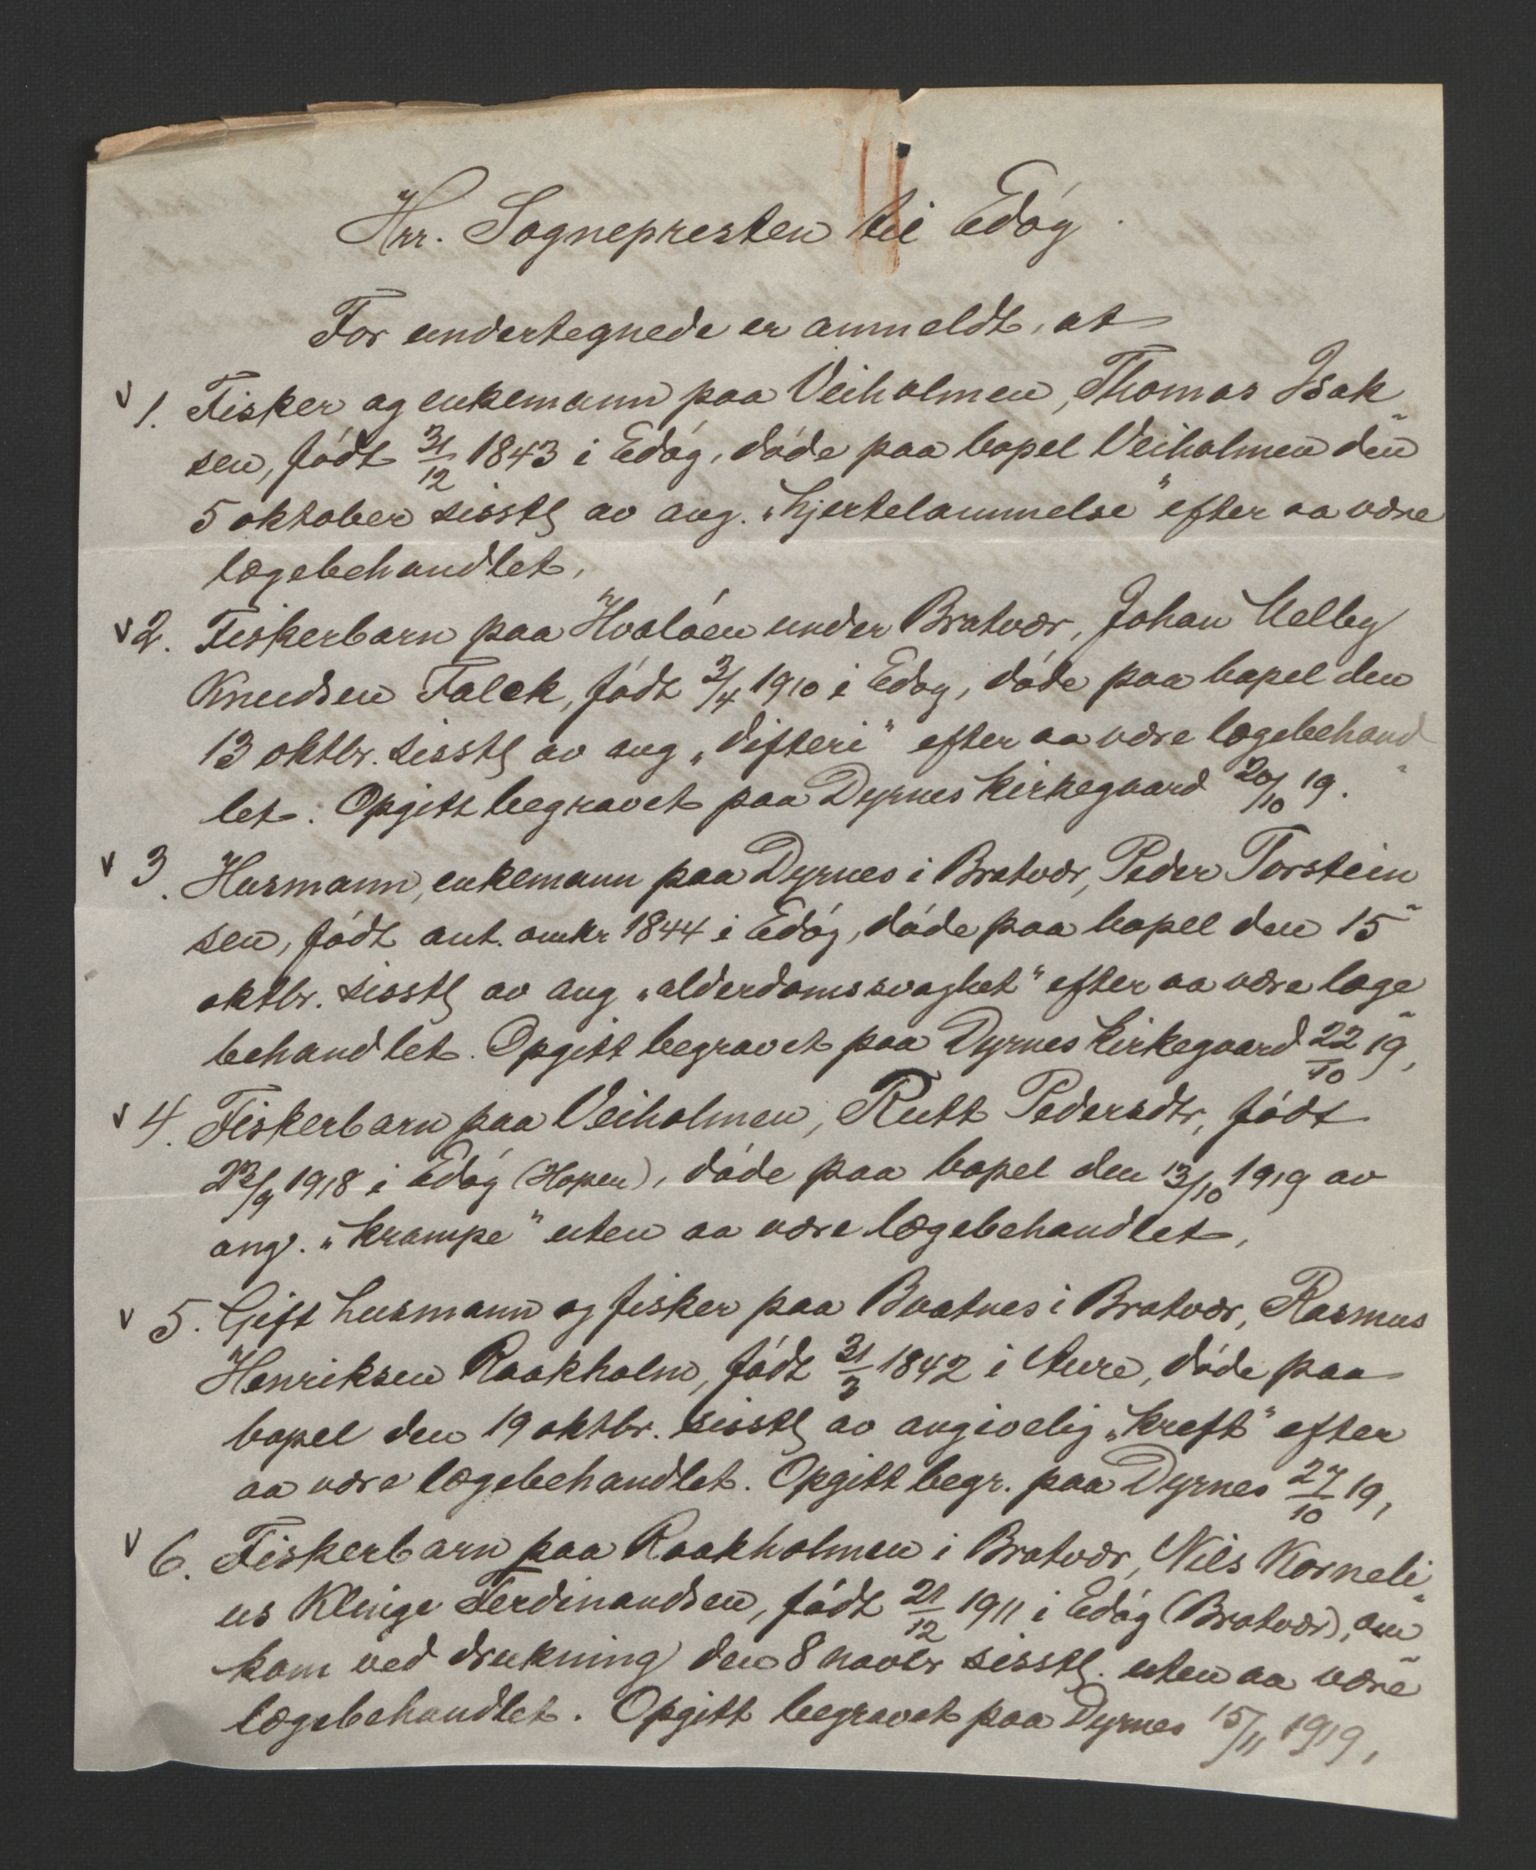 Hrr. Sognepresten til Edøy
For undertegnede er anmeldt, at
v 1. Fisker og enkemann paa Veiholmen, Thomas Isak-
sen, født 31/12 1843 i Edøy, døde paa bopel Veiholmen den
5 oktober sisstl av ang. "hjertelammelse" efter aa være
lægebehandlet.
v 2. Fiskerbarn paa Hvaløen under Bratvær, Johan Melby
Knudsen Falck, født 3/4 1910 i Edøy, døde paa bopel den
13 oktbr. sisstl av ang "difteri" efter aa være lægebehand-
let. Opgitt begravet paa Dyrnes kirkegaard 20/10 19.
v 3. Husmann, enkemann paa Dyrnes i Bratvær, Peder Torstein-
sen, født ant. omkr 1844 i Edøy, døde paa bopel den 15
oktbr. sisstl av ang "alderdomssvaghet" efter aa være læge-
behandlet. Opgitt begravet paa Dyrnes kirkegaard 22/10 19,
v 4. Fiskerbarn paa Veiholmen, Rutt Pedersdtr, født
23/9 1918 i Edøy (Hopen), døde paa bopel den 13/10 1919 av
ang. "krampe" uten aa være lægebehandlet,
v 5. Gift husmann og fisker paa Baatnes i Bratvær, Rasmus
Henriksen Raakholm, født 31/3 1842 i Aure, døde paa
bopel den 19 oktbr. sisstl av angivelig "kreft" efter
aa være lægebehandlet. Opgitt begr. paa Dyrnes 27/10 19,
v 6. Fiskerbarn paa Raakholmen i Bratvær, Nils Korneli-
us Klinge Ferdinandsen, født 21/12 1911 i Edøy (Bratvær), om-
kom ved drukning den 8 novbr sisstl. uten aa være
lægebehandlet. Opgitt begravet paa Dyrnes 15/11 1919,